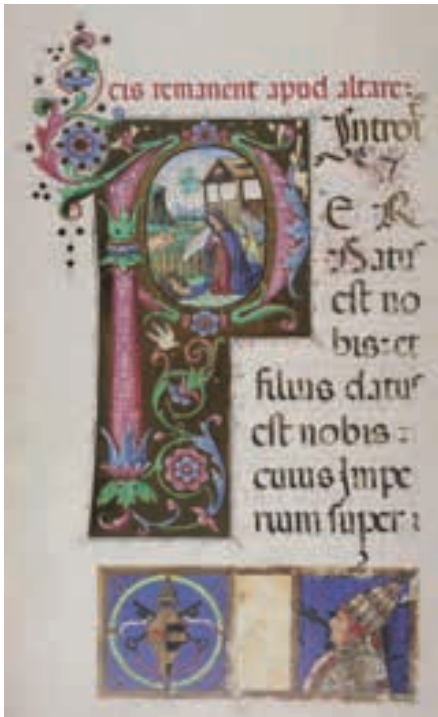 cis remanent apud altare:
Introi
E R
Natu
est no
bis: et
filius datus
est nobis:
cuius Impe
rium super: